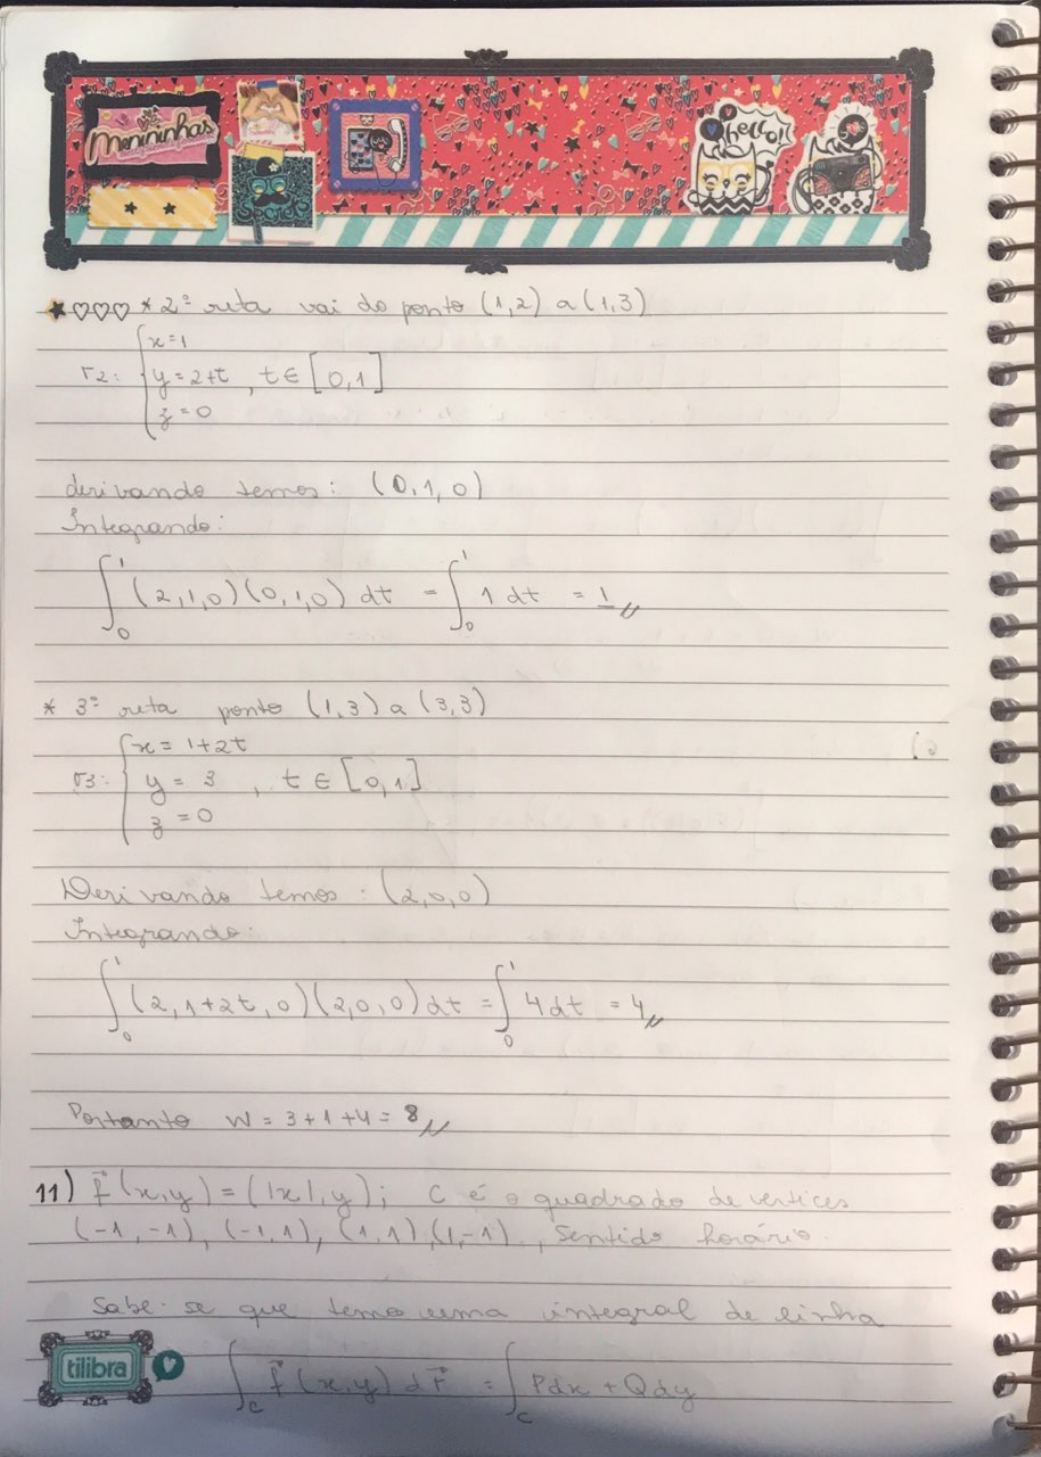 Menininhas
hello!!
* 2ª reta vai do ponto (1,2) a (1,3)
x=1
r2: y=2+t , t ∈ [0,1]
z=0
derivando temos: (0,1,0)
Integrando:
∫₀¹ (2,1,0)(0,1,0) dt = ∫₀¹ 1 dt = 1
* 3ª reta ponto (1,3) a (3,3)
x = 1+2t
r3: y = 3 , t ∈ [0,1]
z = 0
Derivando temos: (2,0,0)
Integrando:
∫₀¹ (2, 1+2t, 0)(2,0,0) dt = ∫₀¹ 4 dt = 4
Portanto W = 3+1+4 = 8
11) f⃗(x,y) = (|x|, y); C é o quadrado de vertices
(-1,-1), (-1,1), (1,1), (1,-1), Sentido horário.
Sabe-se que temo uma integral de linha
tilibra
∫c f⃗(x,y) dr⃗ = ∫c Pdx + Qdy